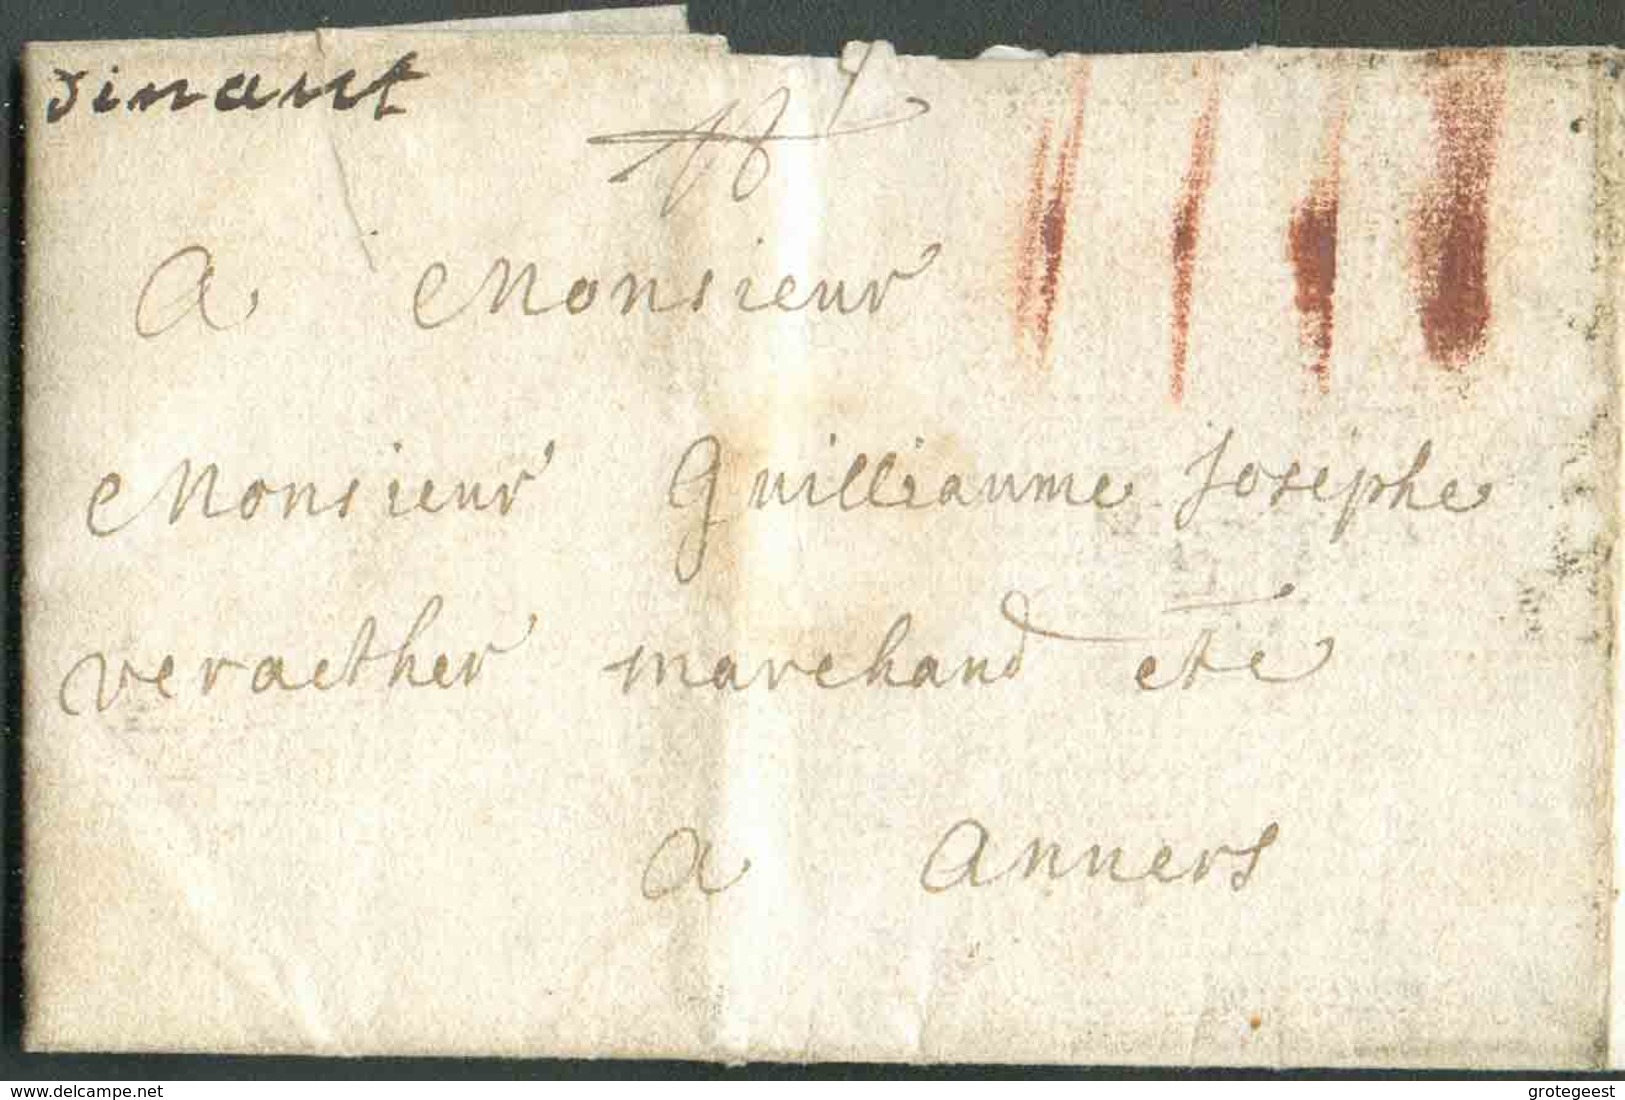 dinant
A Monsieur
Monsieur Guilliaume Josephe
veraether marchand etc
a anvers
© delcampe.net
grotegeest